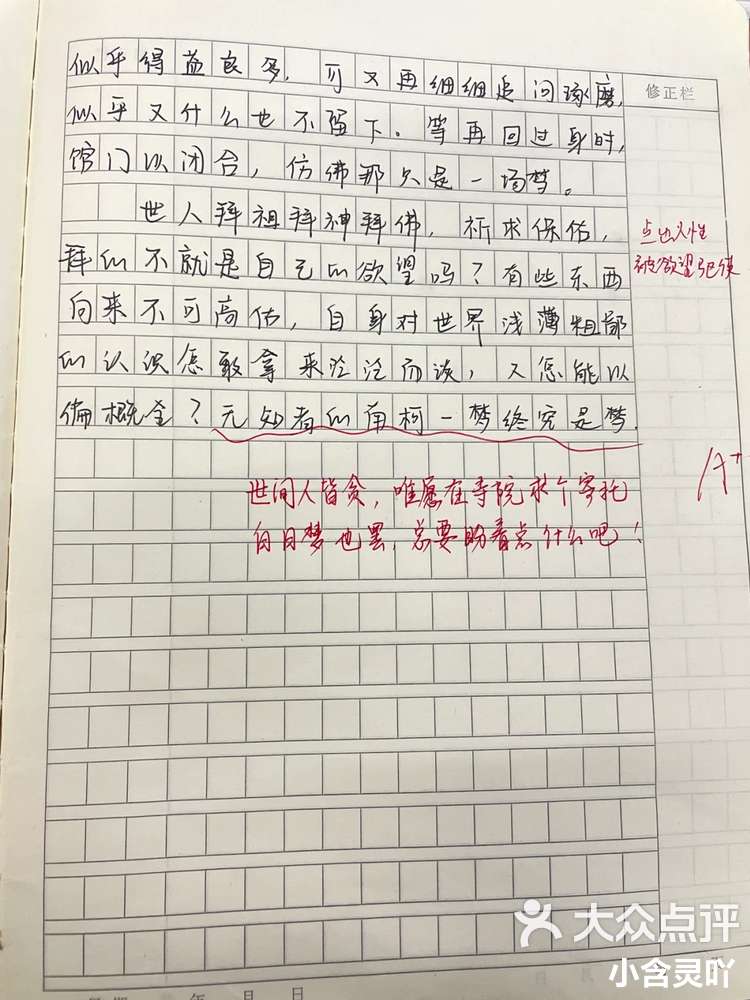 似乎得益良多，可又再细细追问琢磨，
修正栏
似乎又什么也不留下。等再回过身时，
馆门以闭合，仿佛那只是一场梦。
世人拜祖拜神拜佛，祈求保佑，
点出人性
拜的不就是自己的欲望吗？有些东西
被欲望驱使
向来不可高估，自身对世界浅薄粗鄙
的认识怎敢拿来泛泛而谈，又怎能以
偏概全？无知者的南柯一梦终究是梦.
A+
世间人皆贪，唯愿在寺院求个寄托
白日梦也罢，总要盼着点什么吧！
年 月 日
大众点评
小含灵吖